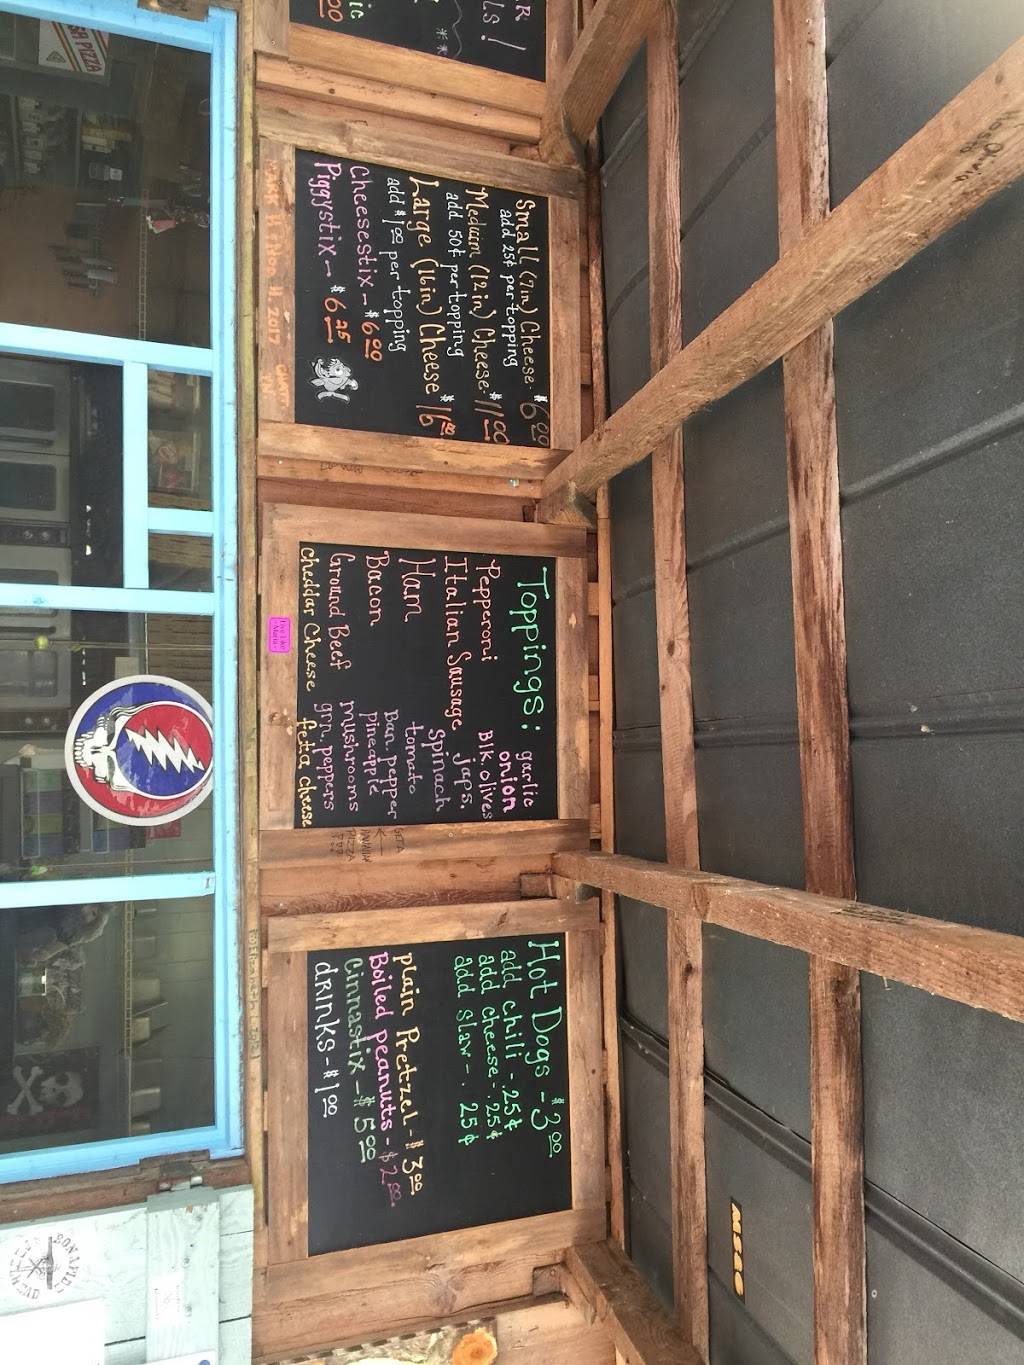 Small (7in) Cheese - $6.00
add 25¢ per topping
Medium (12in) Cheese - $11.00
add 50¢ per topping
Large (16in) Cheese $16.00
add $1.00 per topping
Cheesestix - $6.00
Piggystix - $6.25
Toppings:
Pepperoni
Italian Sausage
Ham
Bacon
Ground Beef
Cheddar Cheese
garlic
onion
Blk. olives
Japs.
Spinach
tomato
Ban. pepper
pineapple
mushrooms
grn. peppers
fetta cheese
Hot Dogs - $3.00
add chili - .25¢
add cheese - .25¢
add slaw - . 25¢
plain Pretzel - $3.00
Boiled peanuts - $2.00
Cinnastix - $5.00
drinks - $1.00
PIZZA